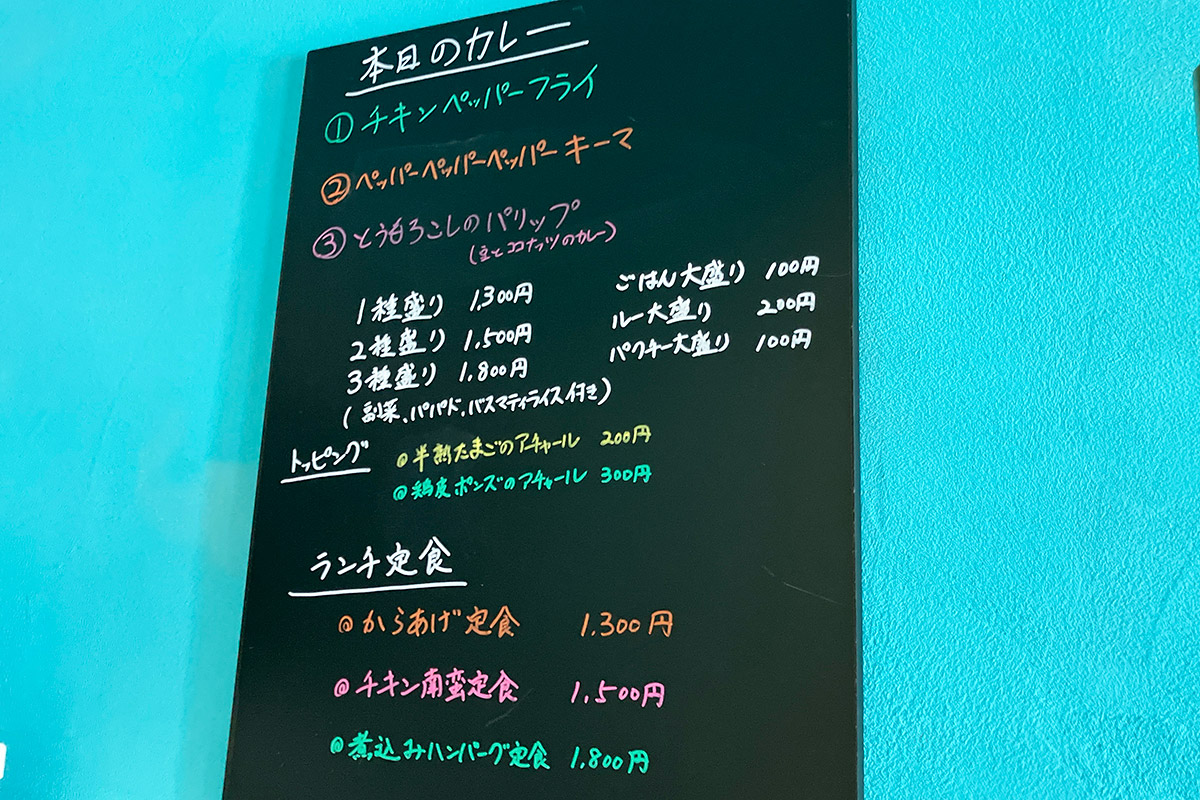 本日のカレー
① チキンペッパーフライ
② ペッパーペッパーペッパーキーマ
③ とうもろこしのパリップ
(豆とココナッツのカレー)
1種盛り 1,300円
2種盛り 1,500円
3種盛り 1,800円
(副菜、パパド、バスマティライス付き)
ごはん大盛り 100円
ルー大盛り 200円
パクチー大盛り 100円
トッピング
@半熟たまごのアチャール 200円
@鶏皮ポンズのアチャール 300円
ランチ定食
@からあげ定食 1.300円
@チキン南蛮定食 1,500円
@煮込みハンバーグ定食 1,800円